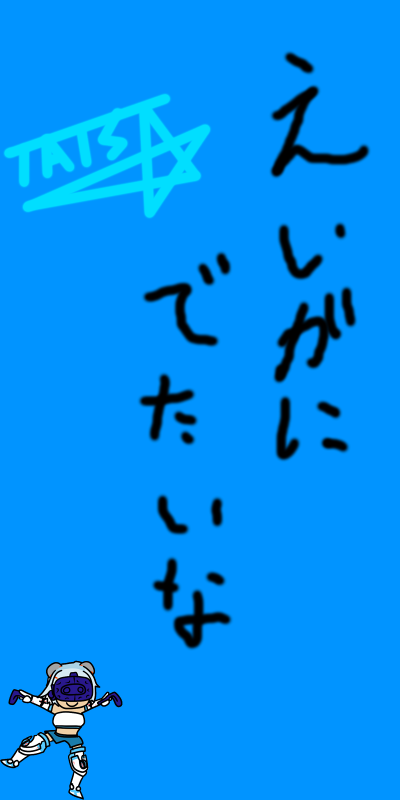 えいがに
でたいな
TATS